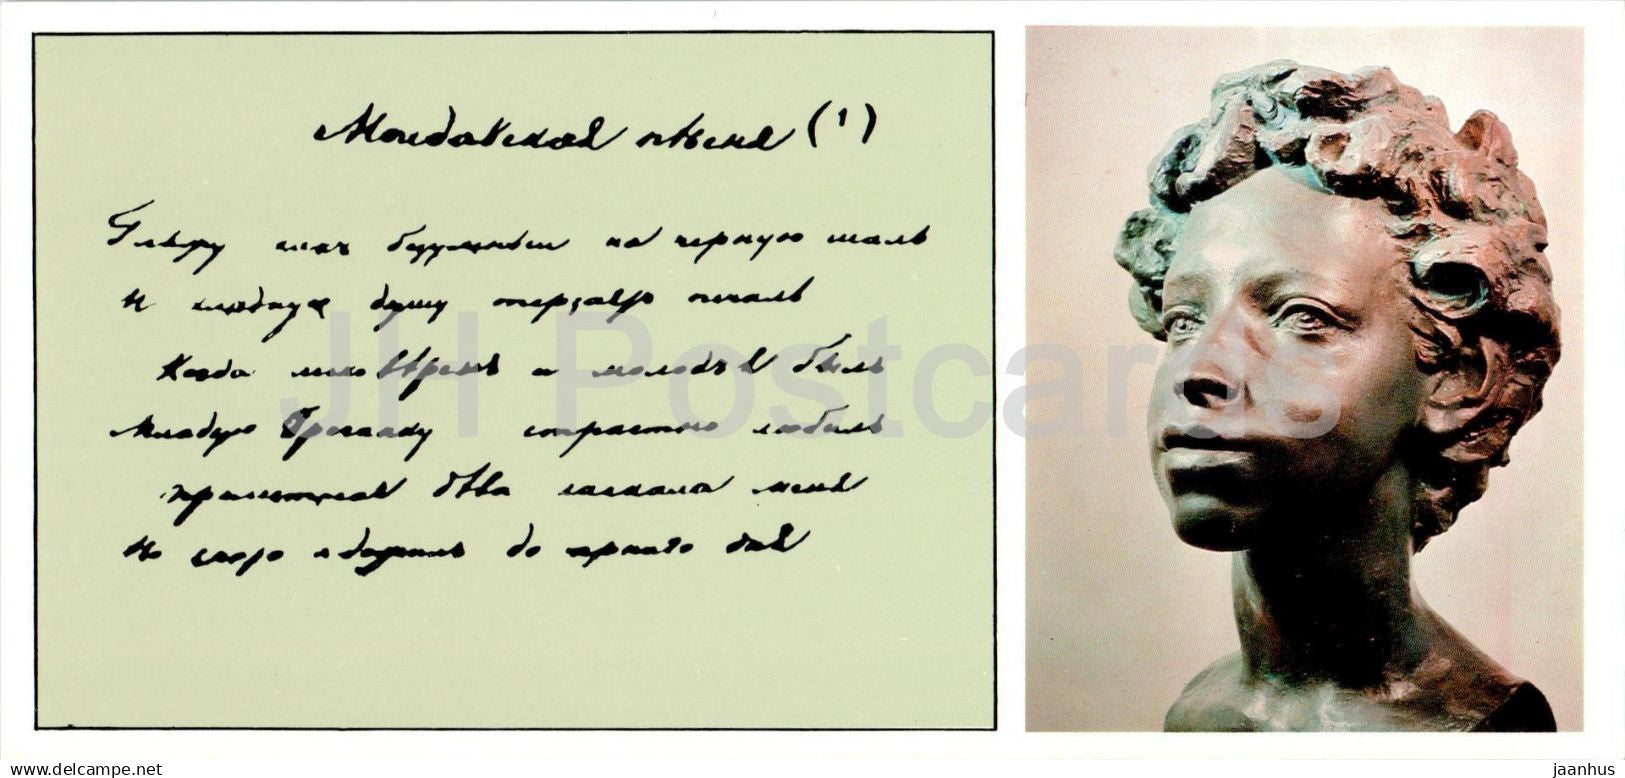 Молдавская пѣсня (1)
Гляжу какъ безумный на черную шаль
И хладную душу терзаетъ печаль
Когда легковѣренъ и молодъ я былъ
Младую Гречанку я страстно любилъ
Прелестная дѣва ласкала меня
Но скоро я дожилъ до чернаго дня
JH Postcards
www.delcampe.net
jaanhus